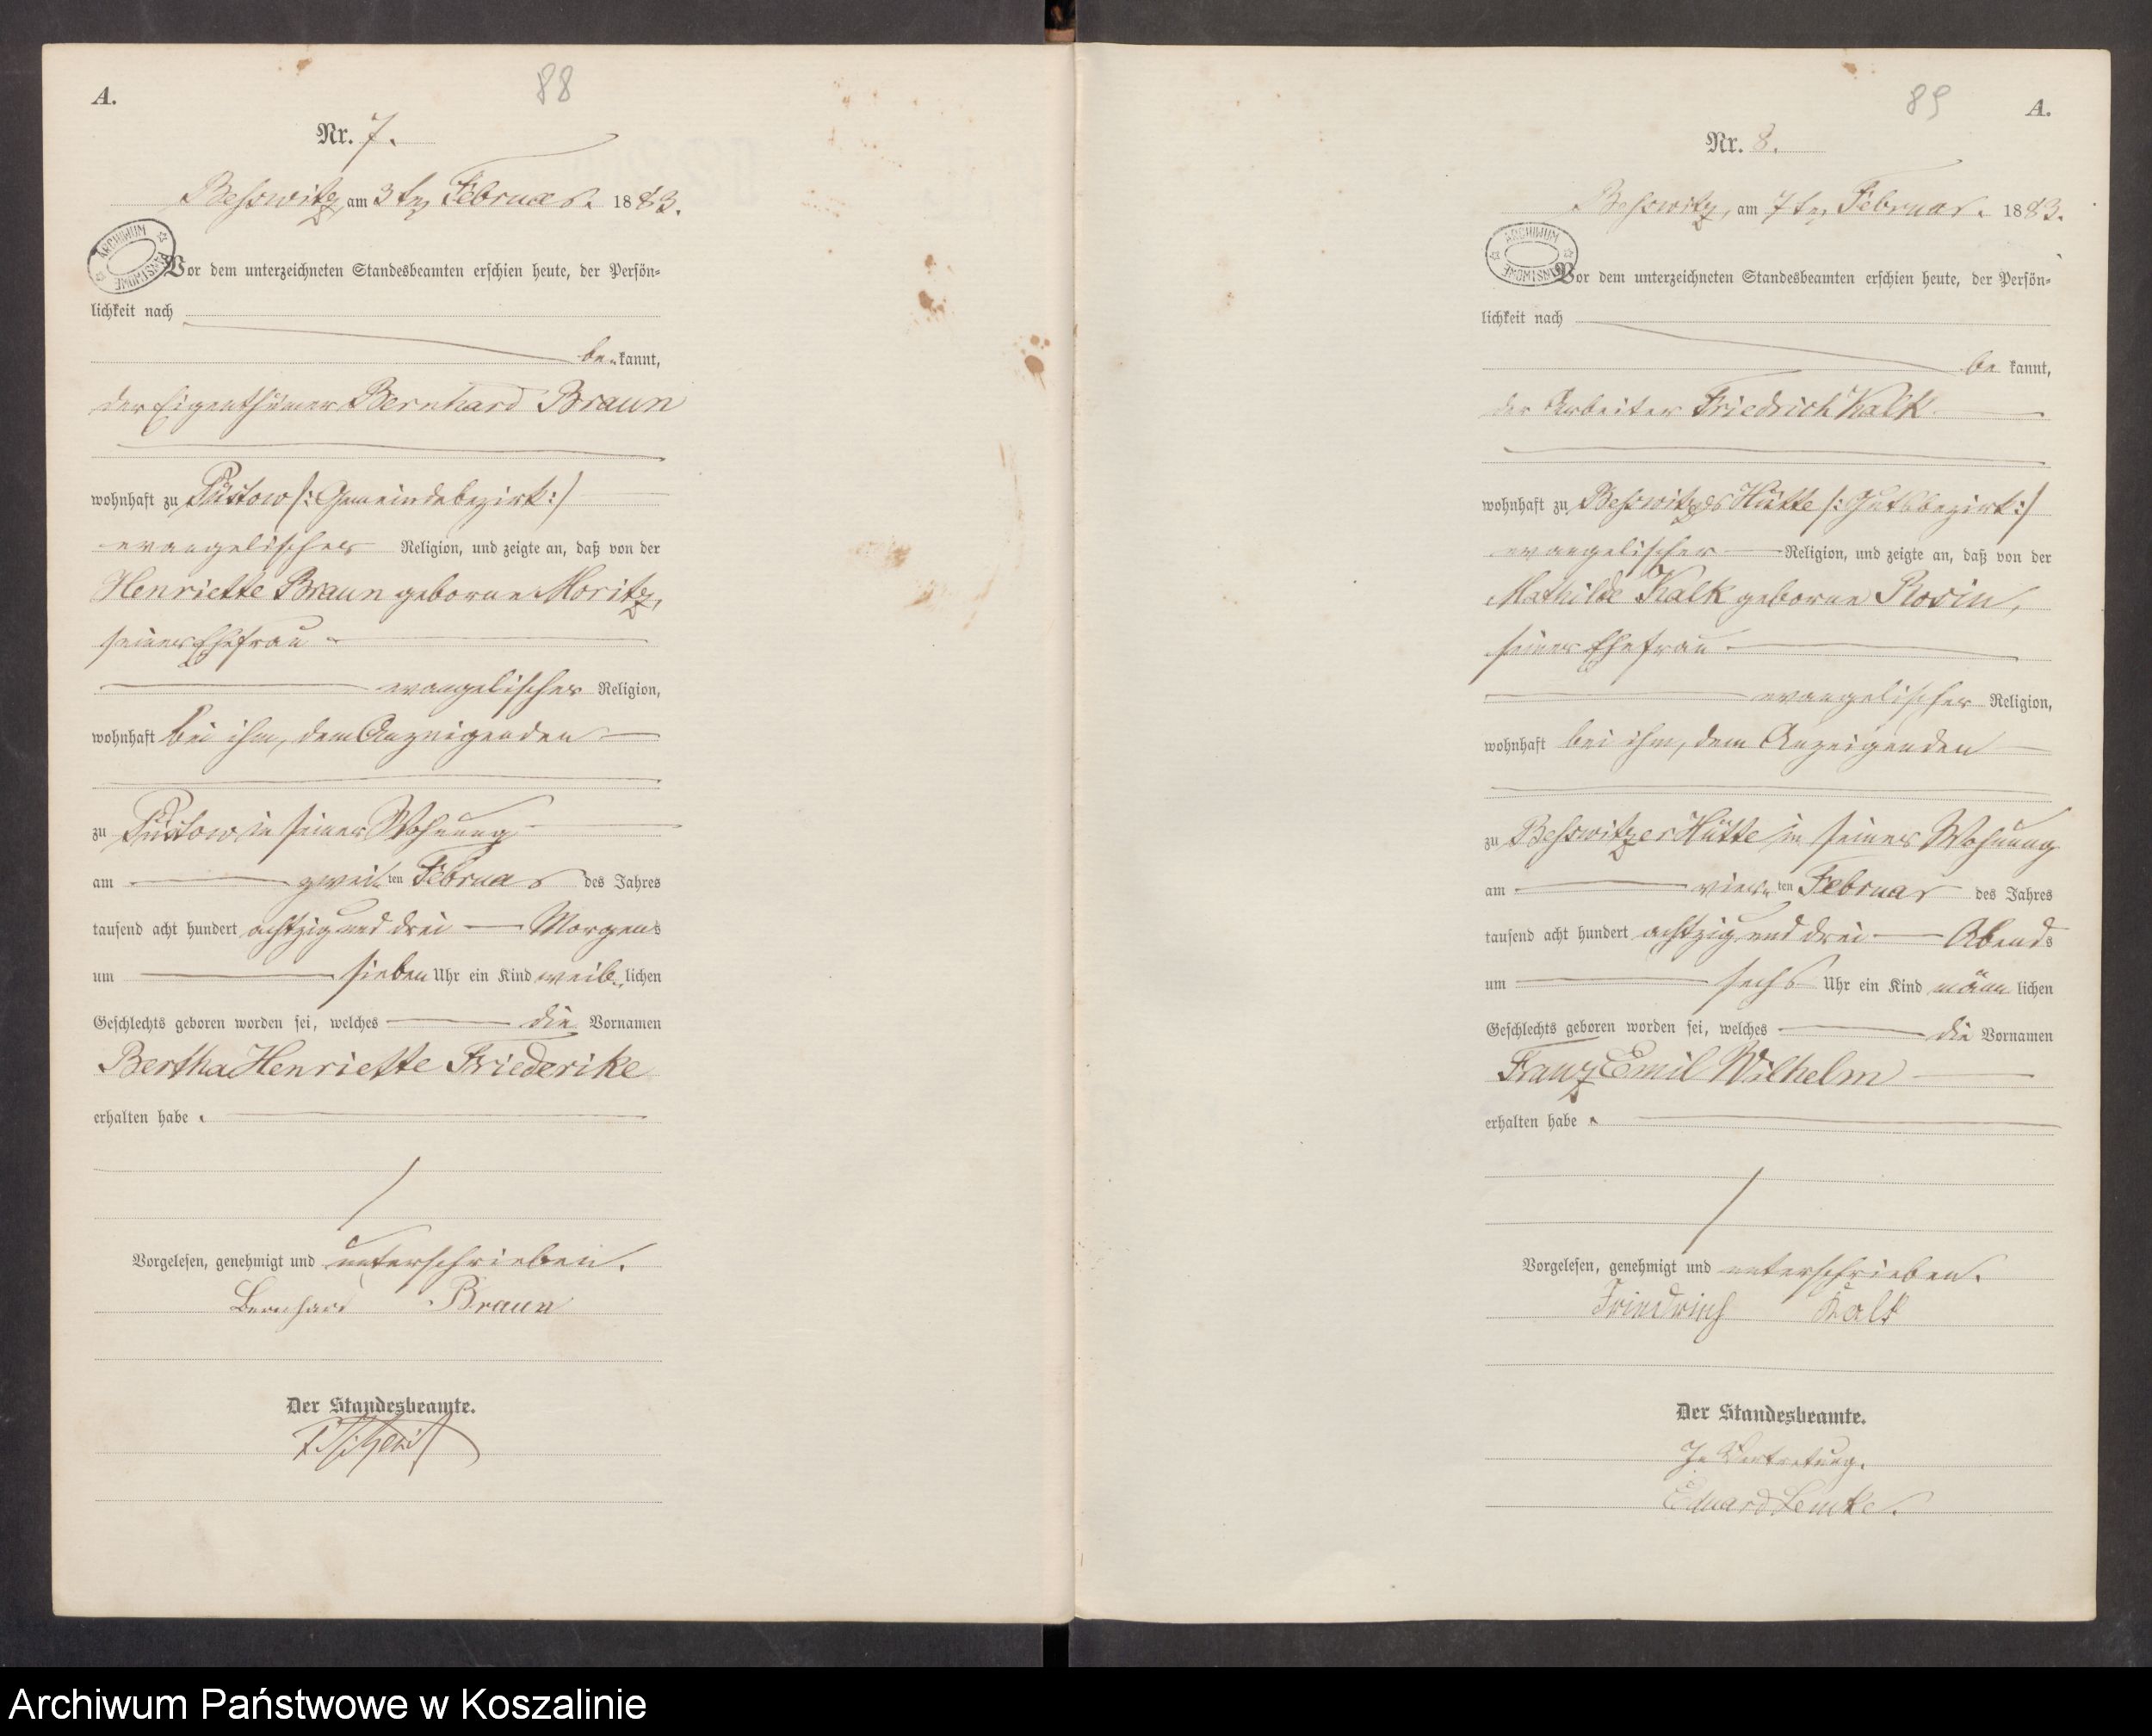 88
A.
Nr. 7.
Besswitz, am 3ten Februar. 1883.
ARCHIWUM PAŃSTWOWE
Vor dem unterzeichneten Standesbeamten erschien heute, der Persön-
lichkeit nach
be-kannt,
der Eigenthümer Bernhard Braun
wohnhaft zu Püstow /: Gemeindebezirk :/
evangelischer Religion, und zeigte an, daß von der
Henriette Braun geborne Moritz,
seiner Ehefrau
evangelischer Religion,
wohnhaft bei ihm, dem Anzeigenden
zu Püstow in seiner Wohnung
am zwei-ten Februar des Jahres
tausend acht hundert achtzig und drei Morgens
um sieben Uhr ein Kind weib-lichen
Geschlechts geboren worden sei, welches die Vornamen
Bertha Henriette Friederike
erhalten habe.
Vorgelesen, genehmigt und unterschrieben.
Bernhard Braun
Der Standesbeamte.
89
A.
Nr. 8.
Besswitz, am 7ten Februar. 1883.
ARCHIWUM PAŃSTWOWE
Vor dem unterzeichneten Standesbeamten erschien heute, der Persön-
lichkeit nach
be kannt,
der Arbeiter Friedrich Kalk
wohnhaft zu Besswitzer Hütte /: Gutsbezirk :/
evangelischer Religion, und zeigte an, daß von der
Mathilde Kalk geborne Rosin,
seiner Ehefrau
evangelischer Religion,
wohnhaft bei ihm, dem Anzeigenden
zu Besswitzer Hütte in seiner Wohnung
am vier-ten Februar des Jahres
tausend acht hundert achtzig und drei Abends
um sechs Uhr ein Kind männ lichen
Geschlechts geboren worden sei, welches die Vornamen
Franz Emil Wilhelm
erhalten habe.
Vorgelesen, genehmigt und unterschrieben.
Friedrich Kalk
Der Standesbeamte.
In Vertretung.
Eduard Lemke.
Archiwum Państwowe w Koszalinie